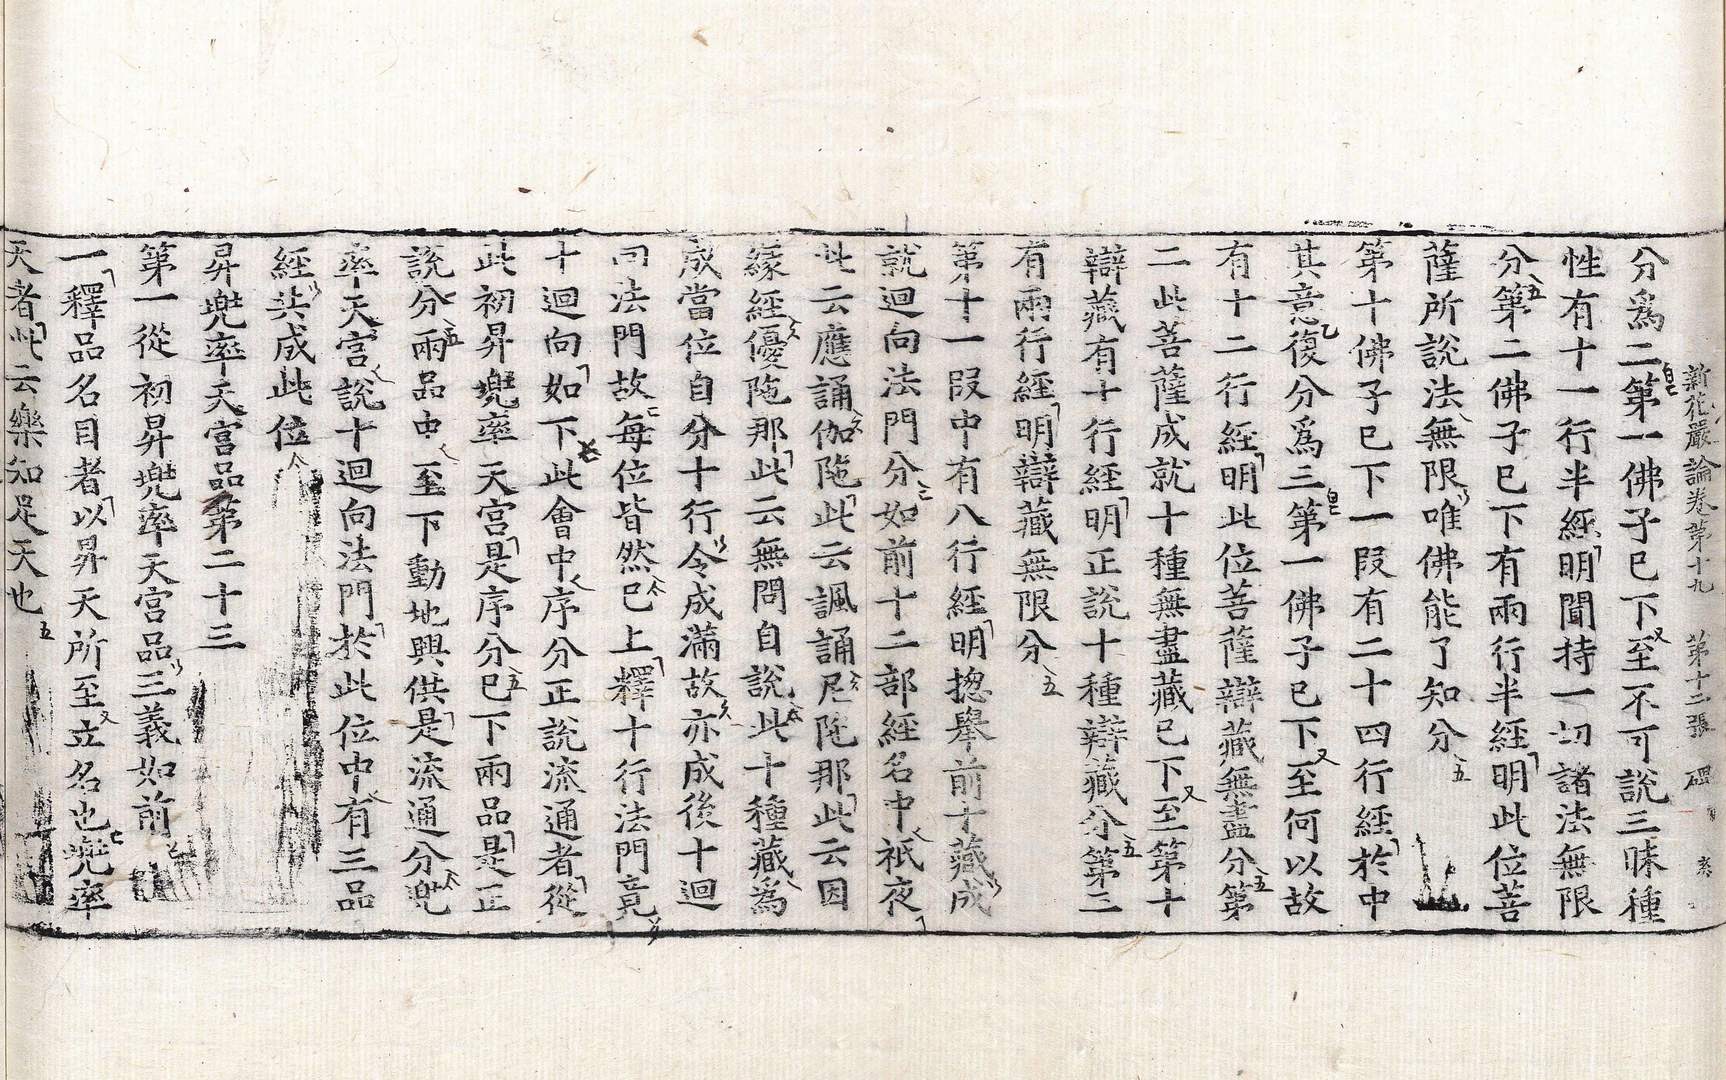 新花嚴論卷第十九 第十二張
分爲二第一佛子已下至不可說三昧種
性有十一行半經明聞持一切諸法無限
分第二佛子已下有兩行半經明此位菩
薩所說法無限唯佛能了知分
第十佛子已下一段有二十四行經於中
其意復分爲三第一佛子已下至何以故
有十二行經明此位菩薩辯藏無盡分第
二此菩薩成就十種無盡藏已下至第十
辯藏有十行經明正說十種辯藏分第三
有兩行經明辯藏無限分
第十一段中有八行經明揔舉前十藏成
就迴向法門分如前十二部經名中祇夜
此云應誦伽陁此云諷誦尼陁那此云因
緣經優陁那此云無問自說此十種藏爲
成當位自分十行令成滿故亦成後十迴
向法門故每位皆然已上釋十行法門竟
十迴向如下此會中序分正說流通者從
此初昇兜率天宮是序分已下兩品是正
說分兩品中至下動地興供是流通分兜
率天宮說十迴向法門於此位中有三品
經共成此位
昇兜率天宮品第二十三
第一從初昇兜率天宮品三義如前
一釋品名目者以昇天所至立名也兜率
天者此云樂知足天也